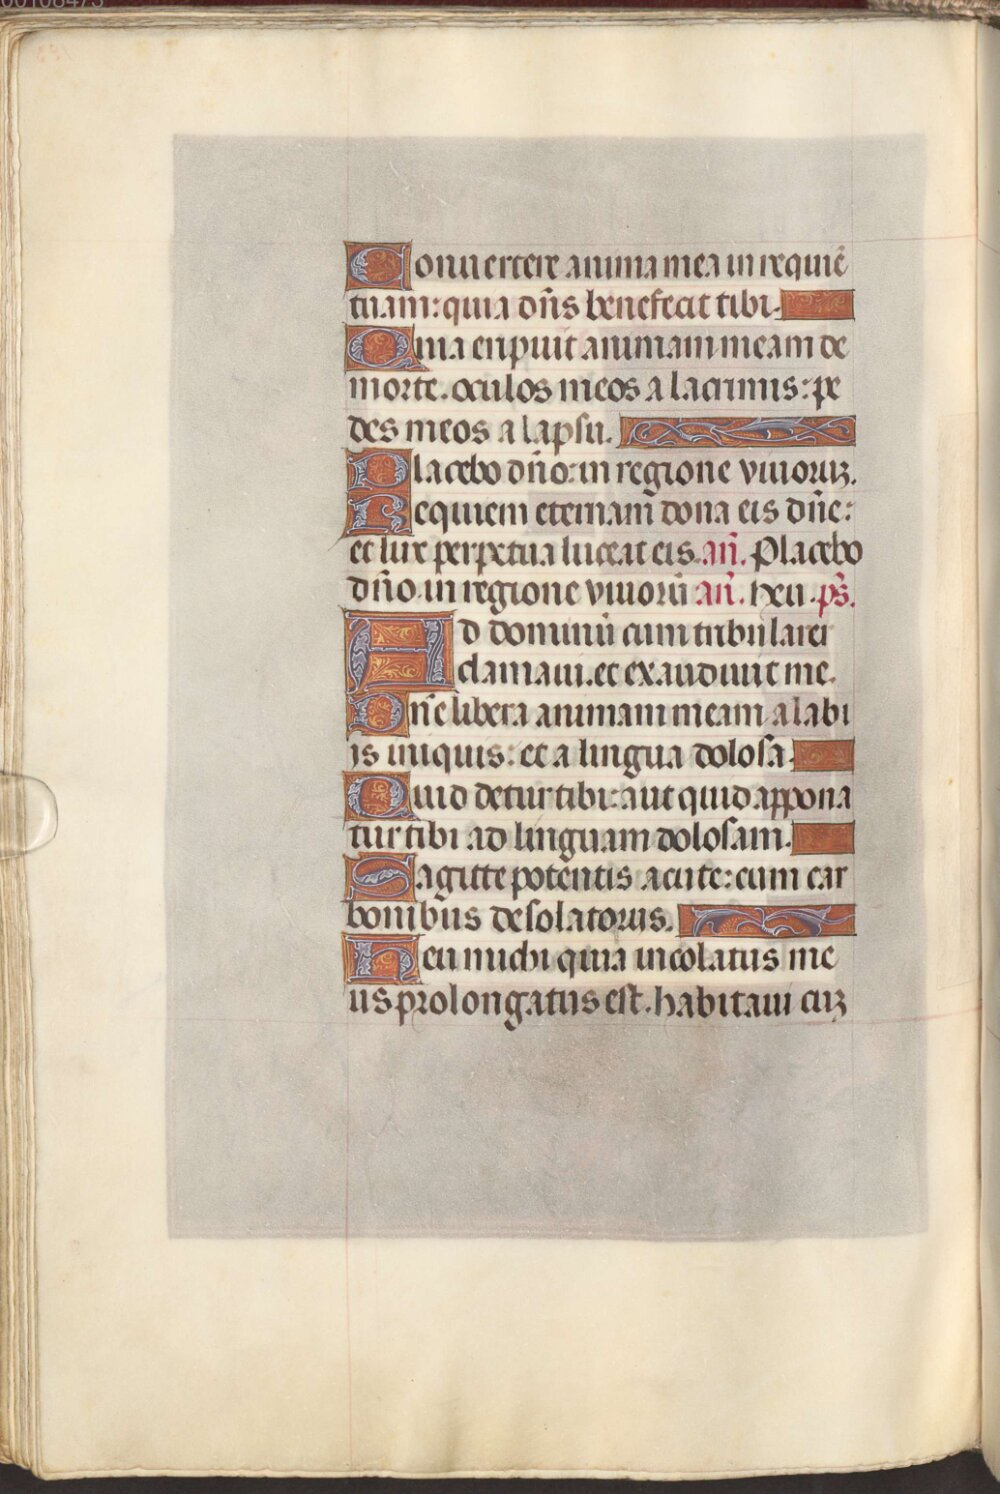 Conuertere anima mea in requiē
tuam: quia dn̄s benefecit tibi.
Quia eripuit animam meam de
morte. oculos meos a lacrimis: pe
des meos a lapsu.
Placebo dn̄o: in regione viuorūꝫ.
Requiem eternam dona eis dn̄e:
et lux perpetua luceat eis. an̄. Placebo
dn̄o in regione viuorū an̄.
ps̄.
Ad dominū cum tribularer
clamaui. et exaudiuit me.
Dn̄e libera animam meam a labi
is iniquis: et a lingua dolosa.
Quid detur tibi: aut quid appona
tur tibi ad linguam dolosam.
Sagitte potentis acute: cum car
bonibus desolatoriis.
Heu michi quia incolatus me
us prolongatus est. habitaui cuꝫ